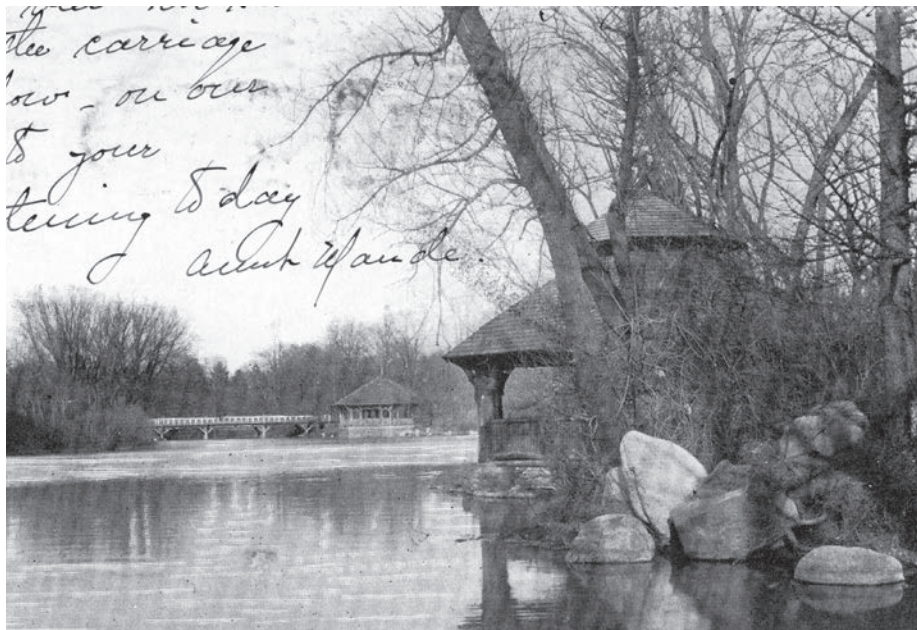 the carriage
low - on our
to your
tening to day
Aunt Maude.